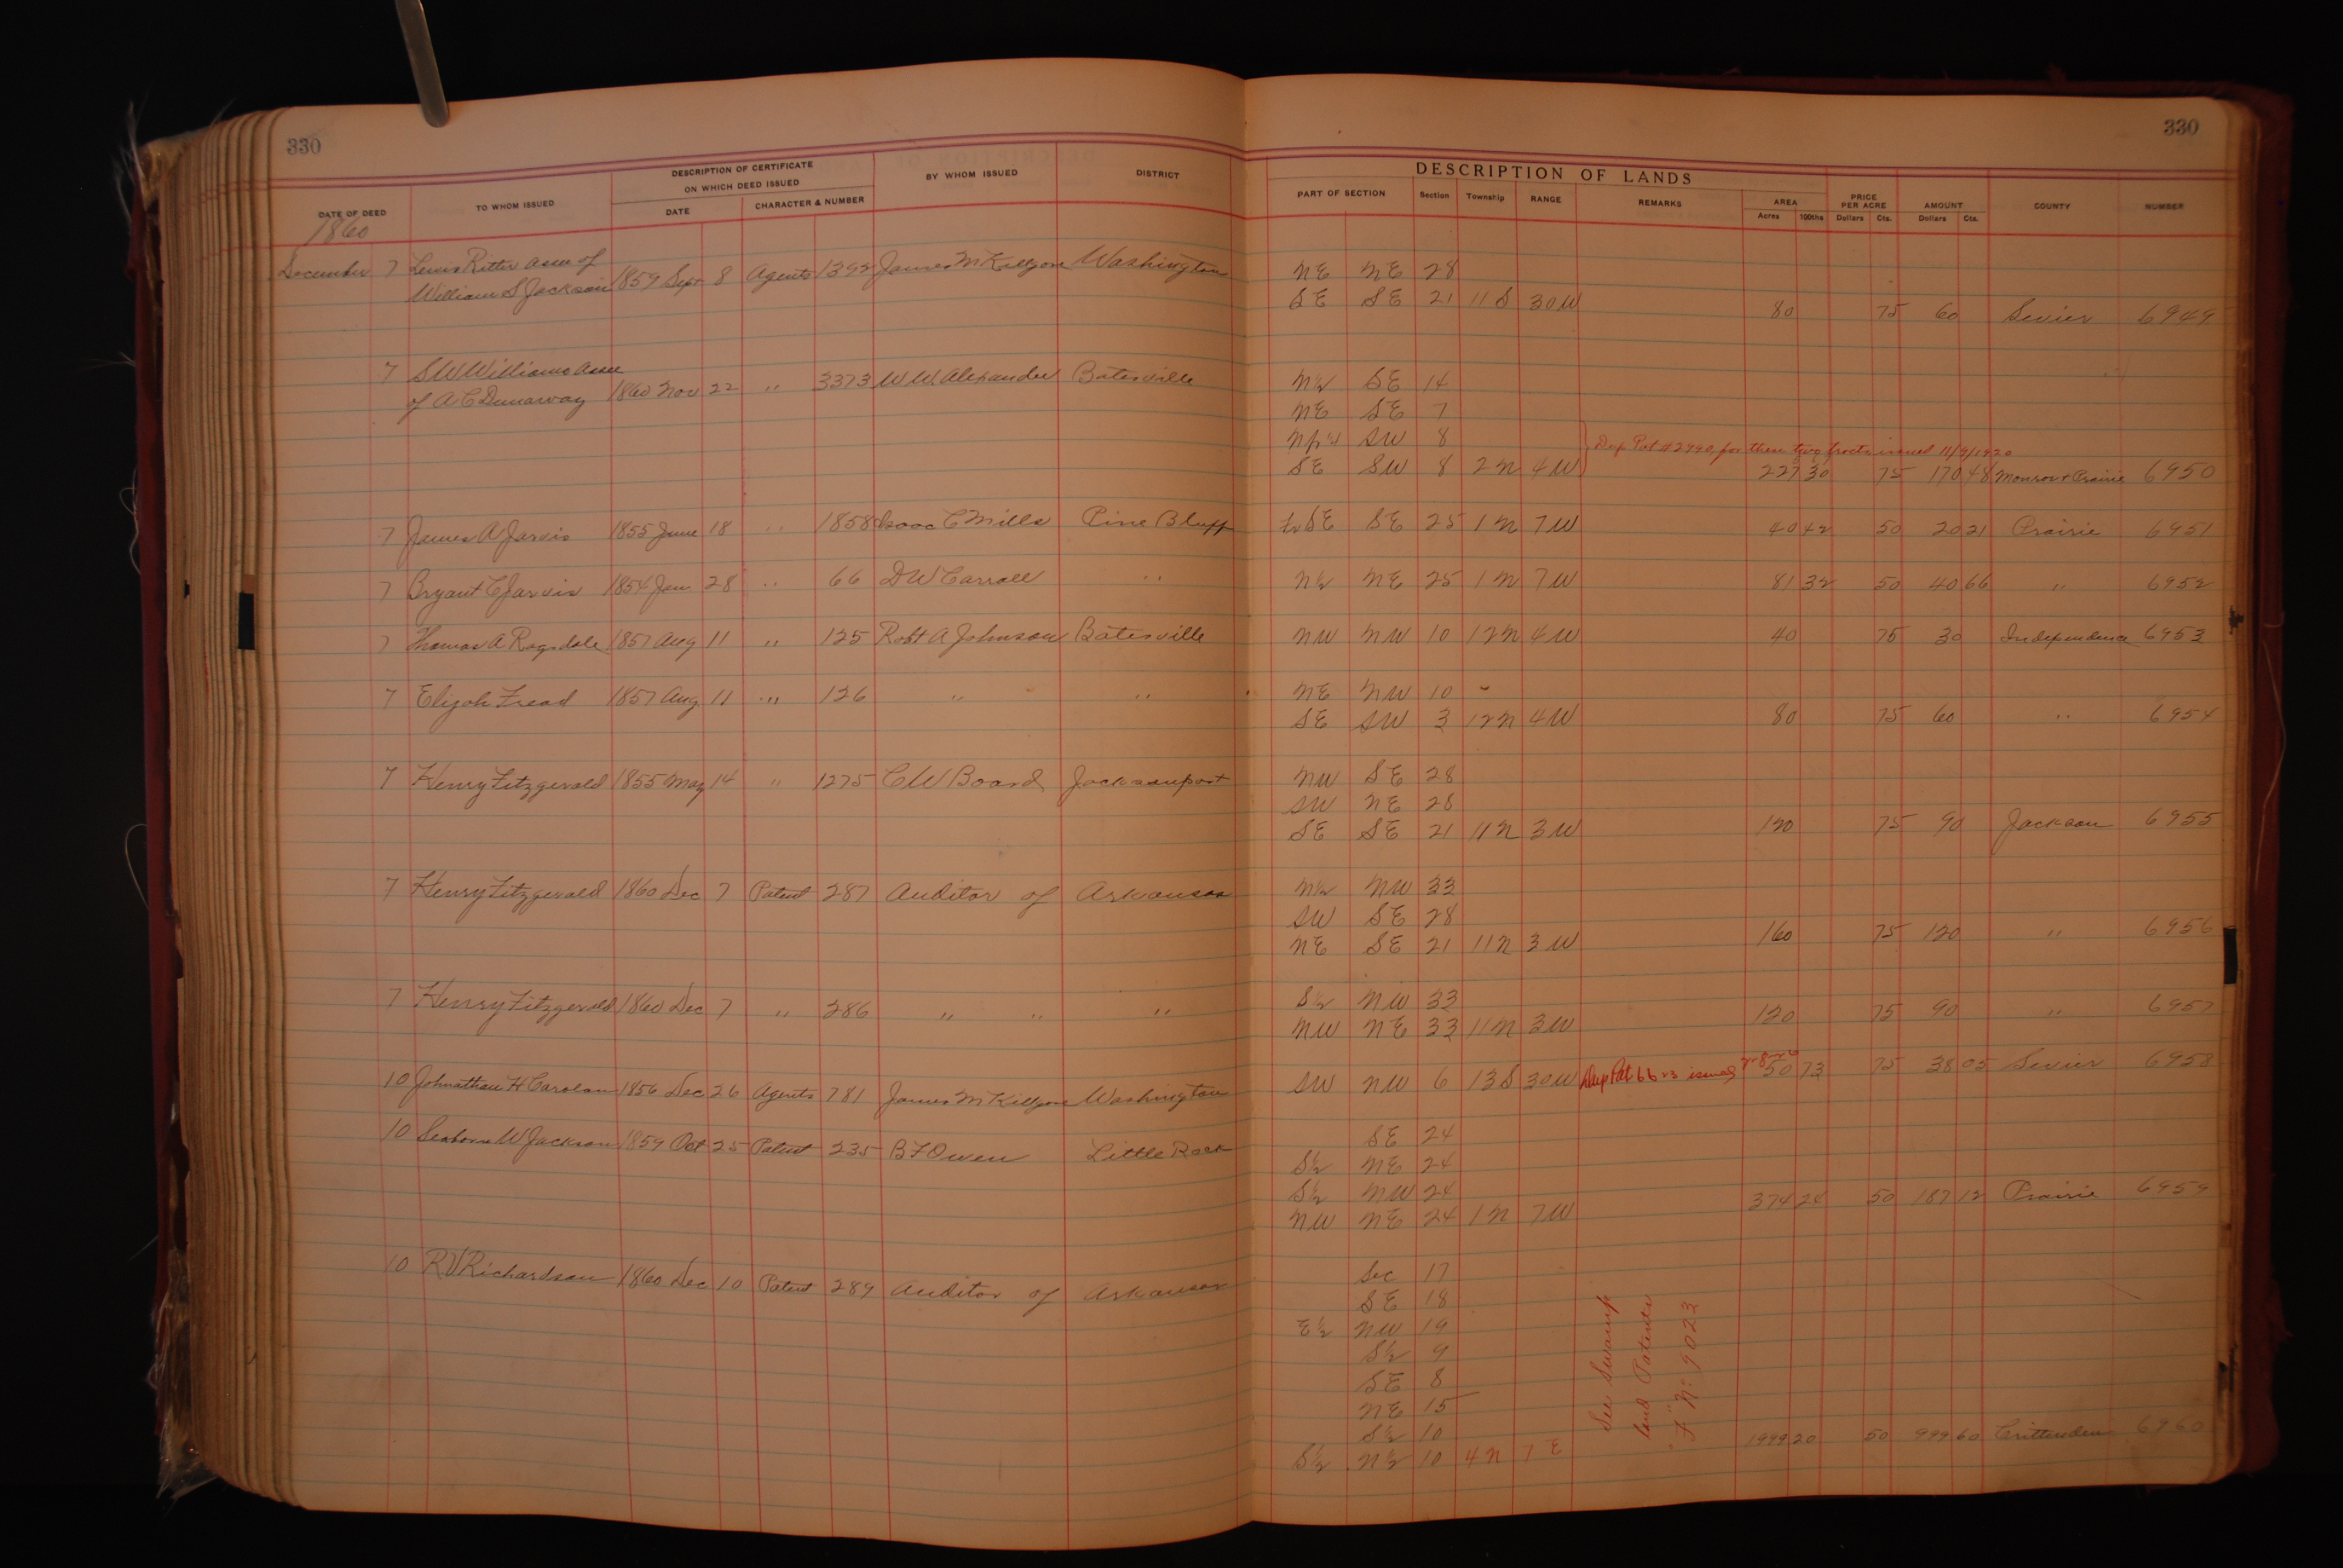 330
330
DESCRIPTION OF CERTIFICATE
ON WHICH DEED ISSUED
DESCRIPTION OF LANDS
DATE OF DEED TO WHOM ISSUED DATE CHARACTER & NUMBER BY WHOM ISSUED DISTRICT PART OF SECTION Section Township RANGE REMARKS AREA PRICE PER ACRE AMOUNT COUNTY NUMBER
Acres 100ths Dollars Cts. Dollars Cts.
1860
December 7 Lewis Ritter Assn of 1859 Sept 8 Agents 1392 James M Killgore Washington NE NE 28
William S Jackson SE SE 21 11 S 30W 80 75 60 Sevier 6949
7 SW Williams Assn 1860 Nov 22 " 3373 W W Alexander Batesville N½ SE 14
of A C Dunaway NE SE 7
SW 8 Dup Pat # 2790, for these two tracts issued 11/9/1920
SE SW 8 2 N 4 W 227 30 75 170 48 Monroe & Prairie 6950
7 James A Jarvis 1855 June 18 " 1858 Isaac C Mills Pine Bluff fr SE SE 25 1 N 7 W 40 42 50 20 21 Prairie 6951
7 Bryant C Jarvis 1854 Jan 28 " 66 D W Carroll " N½ NE 25 1 N 7 W 81 32 50 40 66 " 6952
7 Thomas A Ragsdale 1857 Aug 11 " 125 Robt A Johnson Batesville NW NW 10 12 N 4 W 40 75 30 Independence 6953
7 Elijah Fread 1857 Aug 11 " 126 " " NE NW 10
SE SW 3 12 N 4 W 80 75 60 " 6954
7 Henry Fitzgerald 1855 May 14 " 1275 C W Board Jacksonport NW SE 28
SW NE 28
SE SE 21 11 N 3 W 120 75 90 Jackson 6955
7 Henry Fitzgerald 1860 Dec 7 Patent 287 Auditor of Arkansas N½ NW 33
SW SE 28
NE SE 21 11 N 3 W 160 75 120 " 6956
7 Henry Fitzgerald 1860 Dec 7 " 286 " " " S½ NW 33
NW NE 33 11 N 3 W 120 75 90 " 6957
10 Johnathan H Carolan 1856 Dec 26 Agents 781 James M Killgore Washington SW NW 6 13 S 30 W Dup Pat 6623 issued 50 73 75 38 05 Sevier 6958
10 Seaborn W Jackson 1859 Oct 25 Patent 235 B F Owen Little Rock SE 24
S½ NE 24
S½ NW 24
NW NE 24 1 N 7 W 374 24 50 187 12 Prairie 6959
10 R V Richardson 1860 Dec 10 Patent 289 Auditor of Arkansas Sec 17
SE 18
E½ NW 19
S½ 9
SE 8
NE 15
S½ 10
S½ N½ 10 4 N 7 E 1999 20 50 999 60 Crittenden 6960
See Swamp
land Patents
"F" No 9023